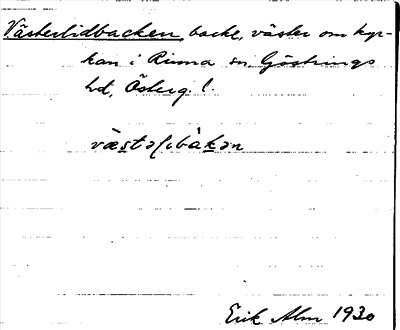 Västerlidbacken, backe, väster om kyr-
kan i Rinna sn, Göstrings
hd, Österg. l.
væstəɽibàkən
Erik Alm 1930